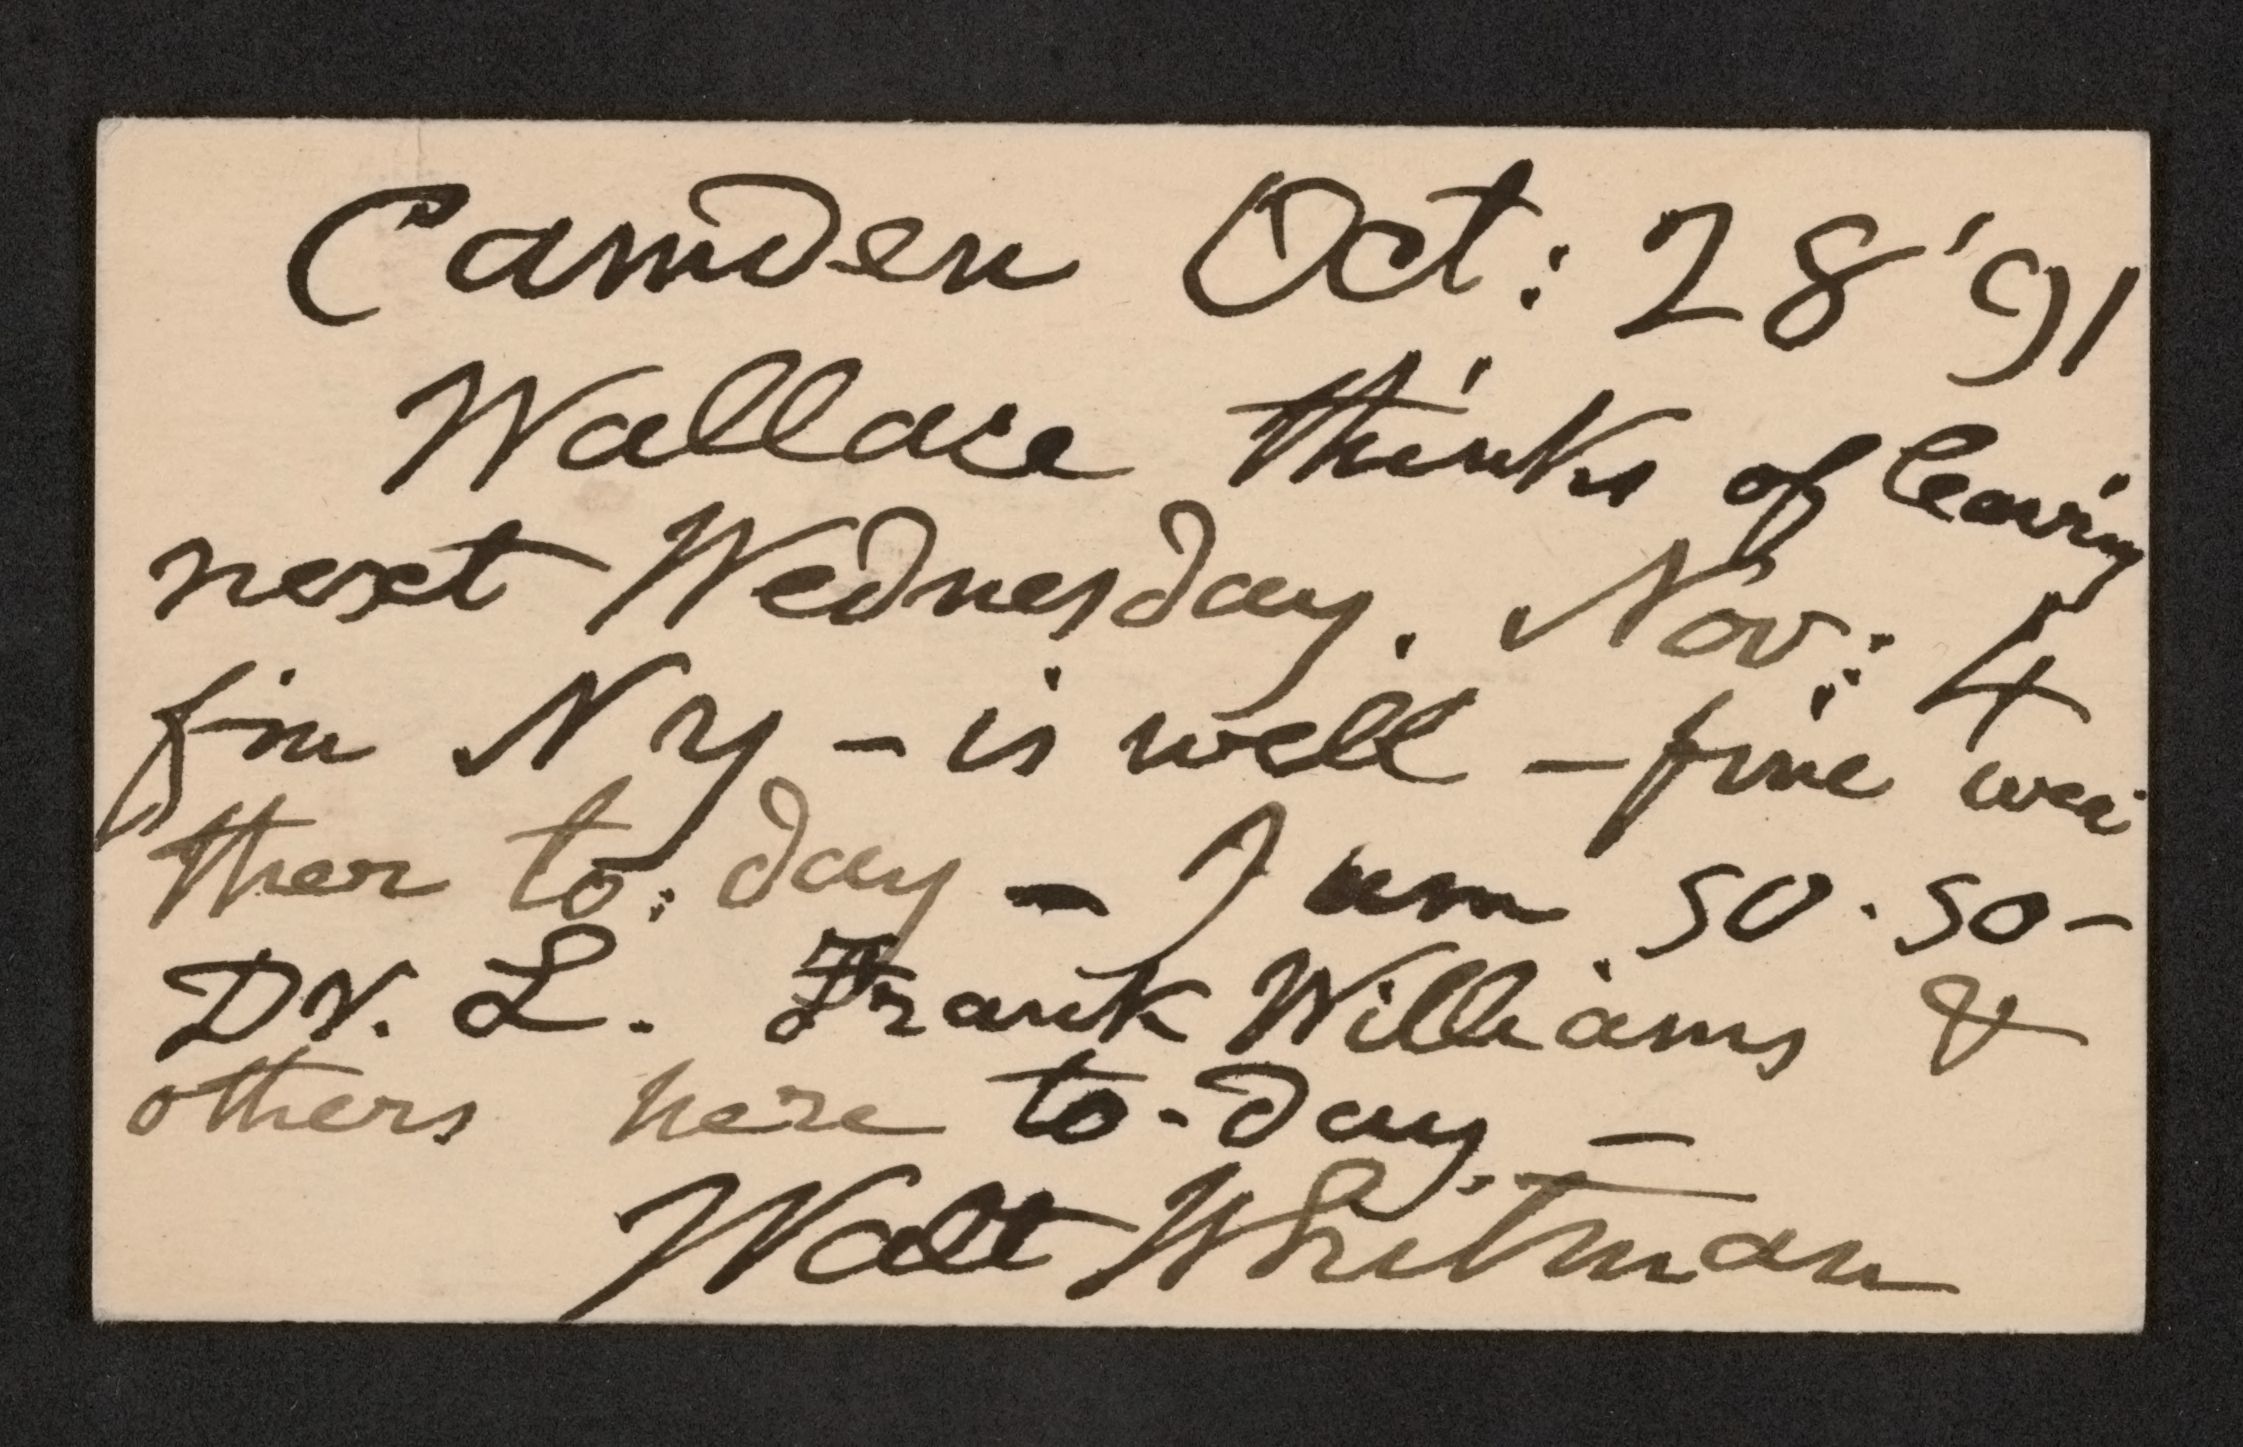 Camden Oct: 28 '91
Wallace thinks of leaving
next Wednesday. Nov: 4
f'm N Y – is well – fine wea
ther to:day – I am so.so –
Dr. L. Frank Williams &
others here to-day. –
Walt Whitman